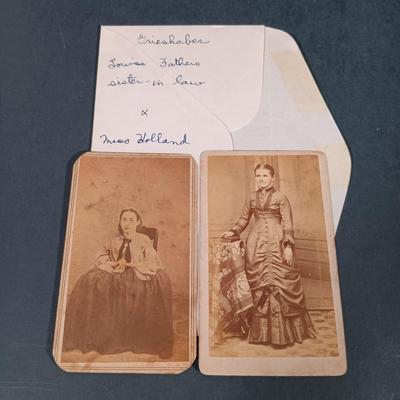 Grieshaber
Louise Fathers
sister-in law
x
Miss Holland